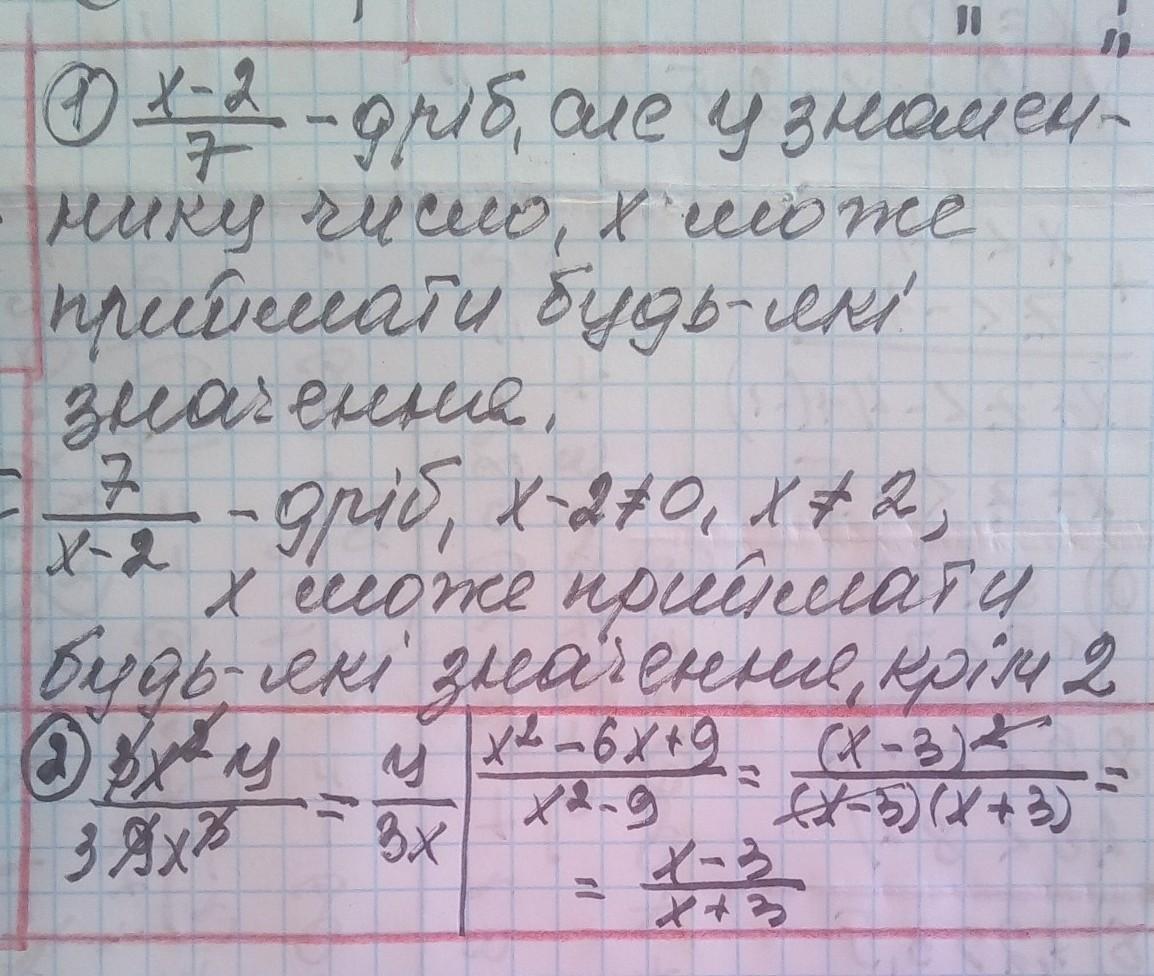 ① x-2/7 - дріб, але у знамен-
нику число, x може
приймати будь-які
значення.
7/x-2 - дріб, x-2≠0, x≠2,
x може приймати
будь-які значення, крім 2
② 3x²y/3 9x³ = y/3x | x²-6x+9/x²-9 = (x-3)²/(x-3)(x+3) =
= x-3/x+3